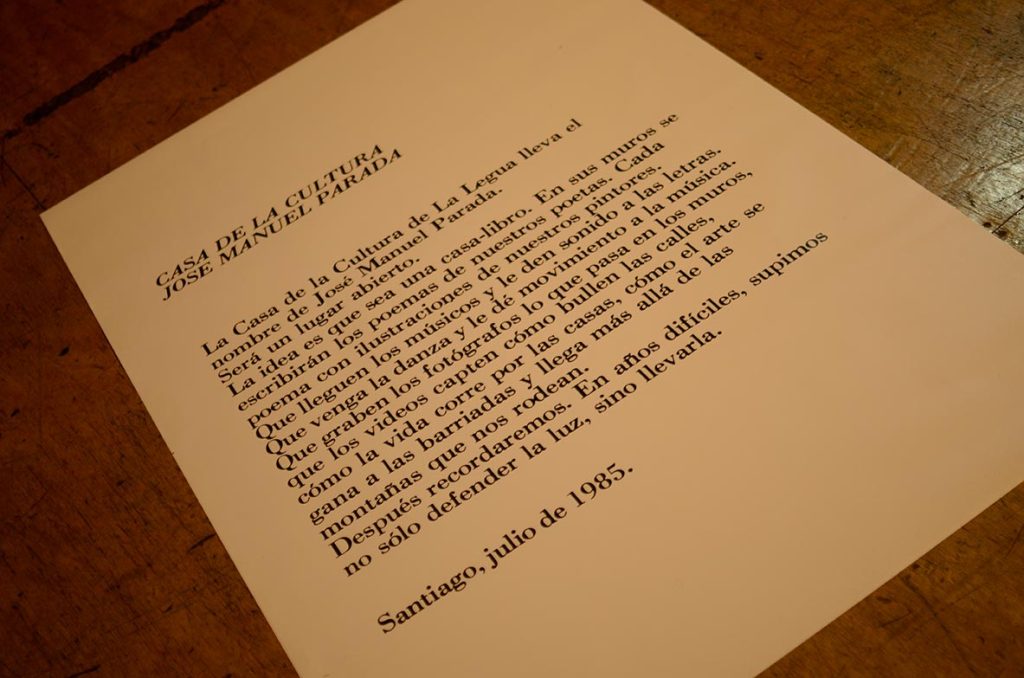 CASA DE LA CULTURA
JOSE MANUEL PARADA
La Casa de la Cultura de La Legua lleva el
nombre de José Manuel Parada.
Será un lugar abierto.
La idea es que sea una casa-libro. En sus muros se
escribirán los poemas de nuestros poetas. Cada
poema con ilustraciones de nuestros pintores.
Que lleguen los músicos y le den sonido a las letras.
Que venga la danza y le dé movimiento a la música.
Que graben los fotógrafos lo que pasa en los muros,
que los videos capten cómo bullen las calles,
cómo la vida corre por las casas, cómo el arte se
gana a las barriadas y llega más allá de las
montañas que nos rodean.
Después recordaremos. En años difíciles, supimos
no sólo defender la luz, sino llevarla.
Santiago, julio de 1985.